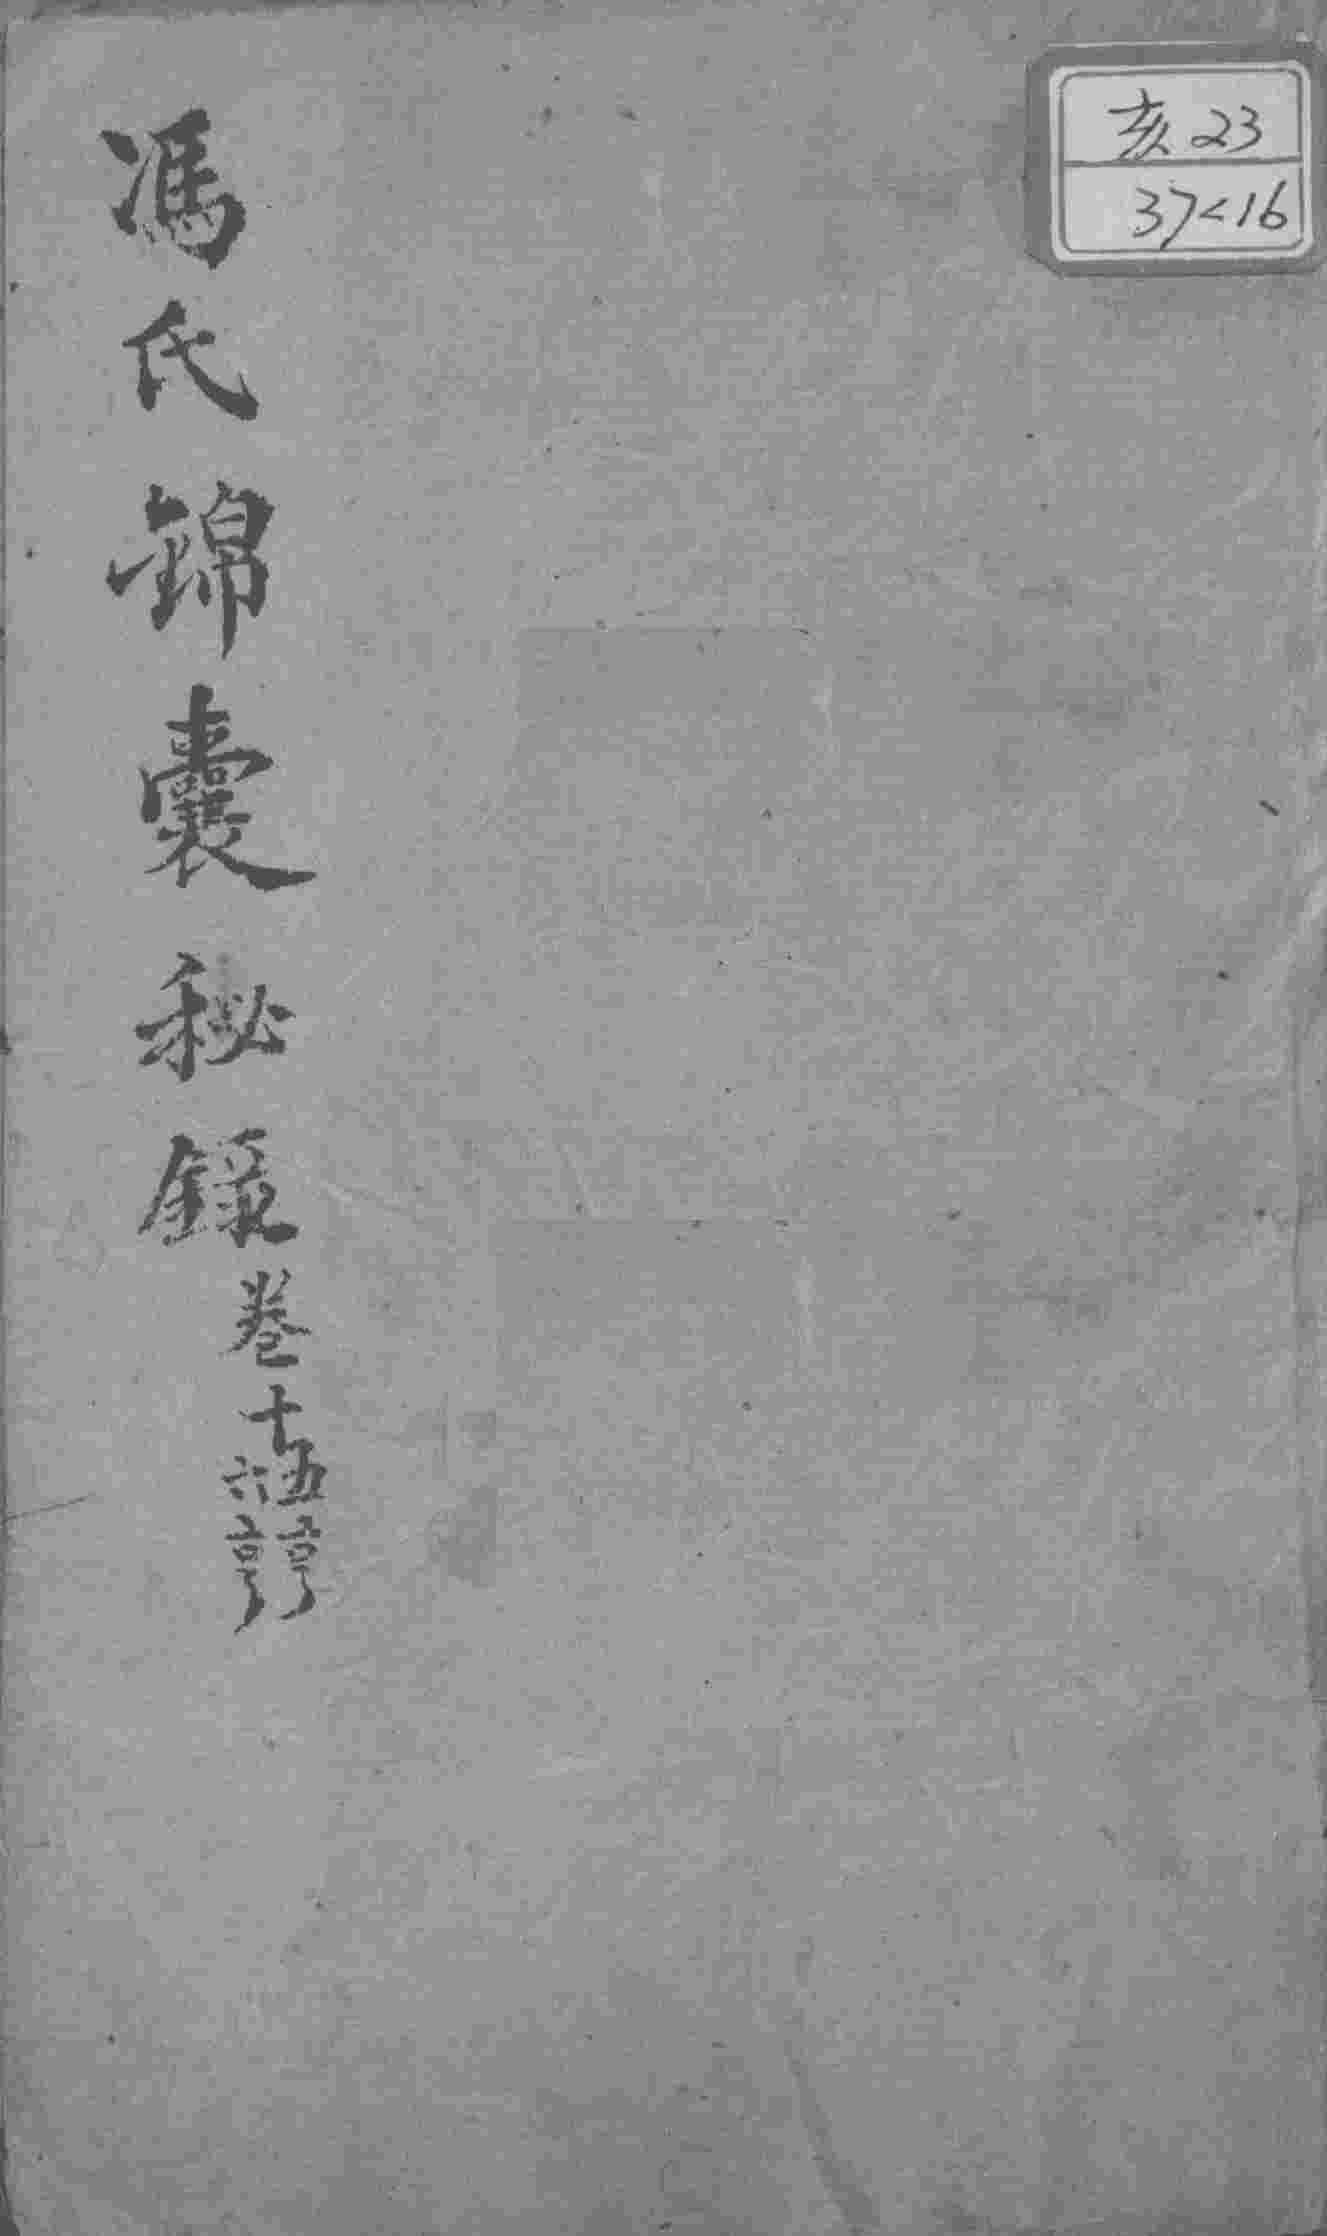 亥23
37<16
馮氏錦囊秘錄卷十五亨
六亨